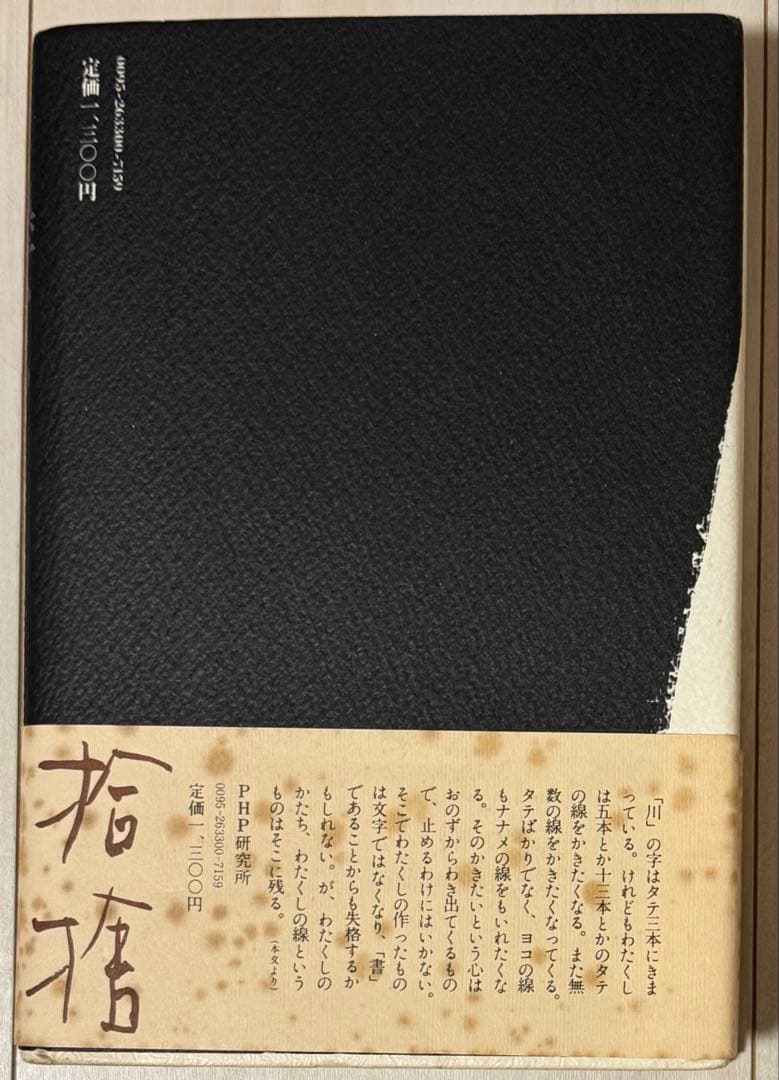 0095-263300-7159
定価一、三〇〇円
「川」の字はタテ三本にきま
っている。けれどもわたくし
は五本とか十三本とかのタテ
の線をかきたくなる。また無
数の線をかきたくなってくる。
タテばかりでなく、ヨコの線
もナナメの線をもいれたくな
る。そのかきたいという心は
おのずからわき出てくるもの
で、止めるわけにはいかない。
そこでわたくしの作ったもの
は文字ではなくなり、「書」
であることからも失格するか
もしれない。が、わたくしの
かたち、わたくしの線という
ものはそこに残る。
(本文より)
PHP研究所
0095-263300-7159
定価一、三〇〇円
拾
捨